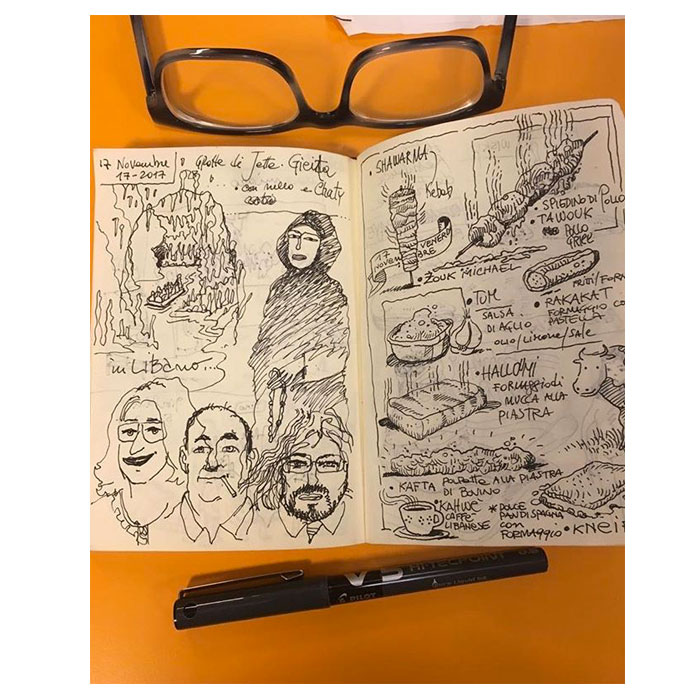 17 Novembre
17-2017
Grotte di Jeita
con nillo e Chaty
in LIBANO...
• SHAWARMA
Kebab
17
NOVEMBRE
VENERDI
SPIEDINO DI POLLO
• TAWOUK
POLLO
• ZOUK MICHAEL
FRITTI/FORM
• TOM
SALSA
DI AGLIO
OLIO/LIMONE/SALE
• RAKAKAT
FORMAGGIO CO
PASTELLA
• HALLOMI
FORMAGGIO di
MUCCA ALLA
PIASTRA
• KAFTA Polpette ALLA PIASTRA
DI BOVINO
• KAHWE
CAFFE'
LIBANESE
* DOLCE
PAN DI SPAGNA
con
FORMAGGIO
• KNEI
V5 HI-TECPOINT 0.5
PILOT
Pure Liquid Ink